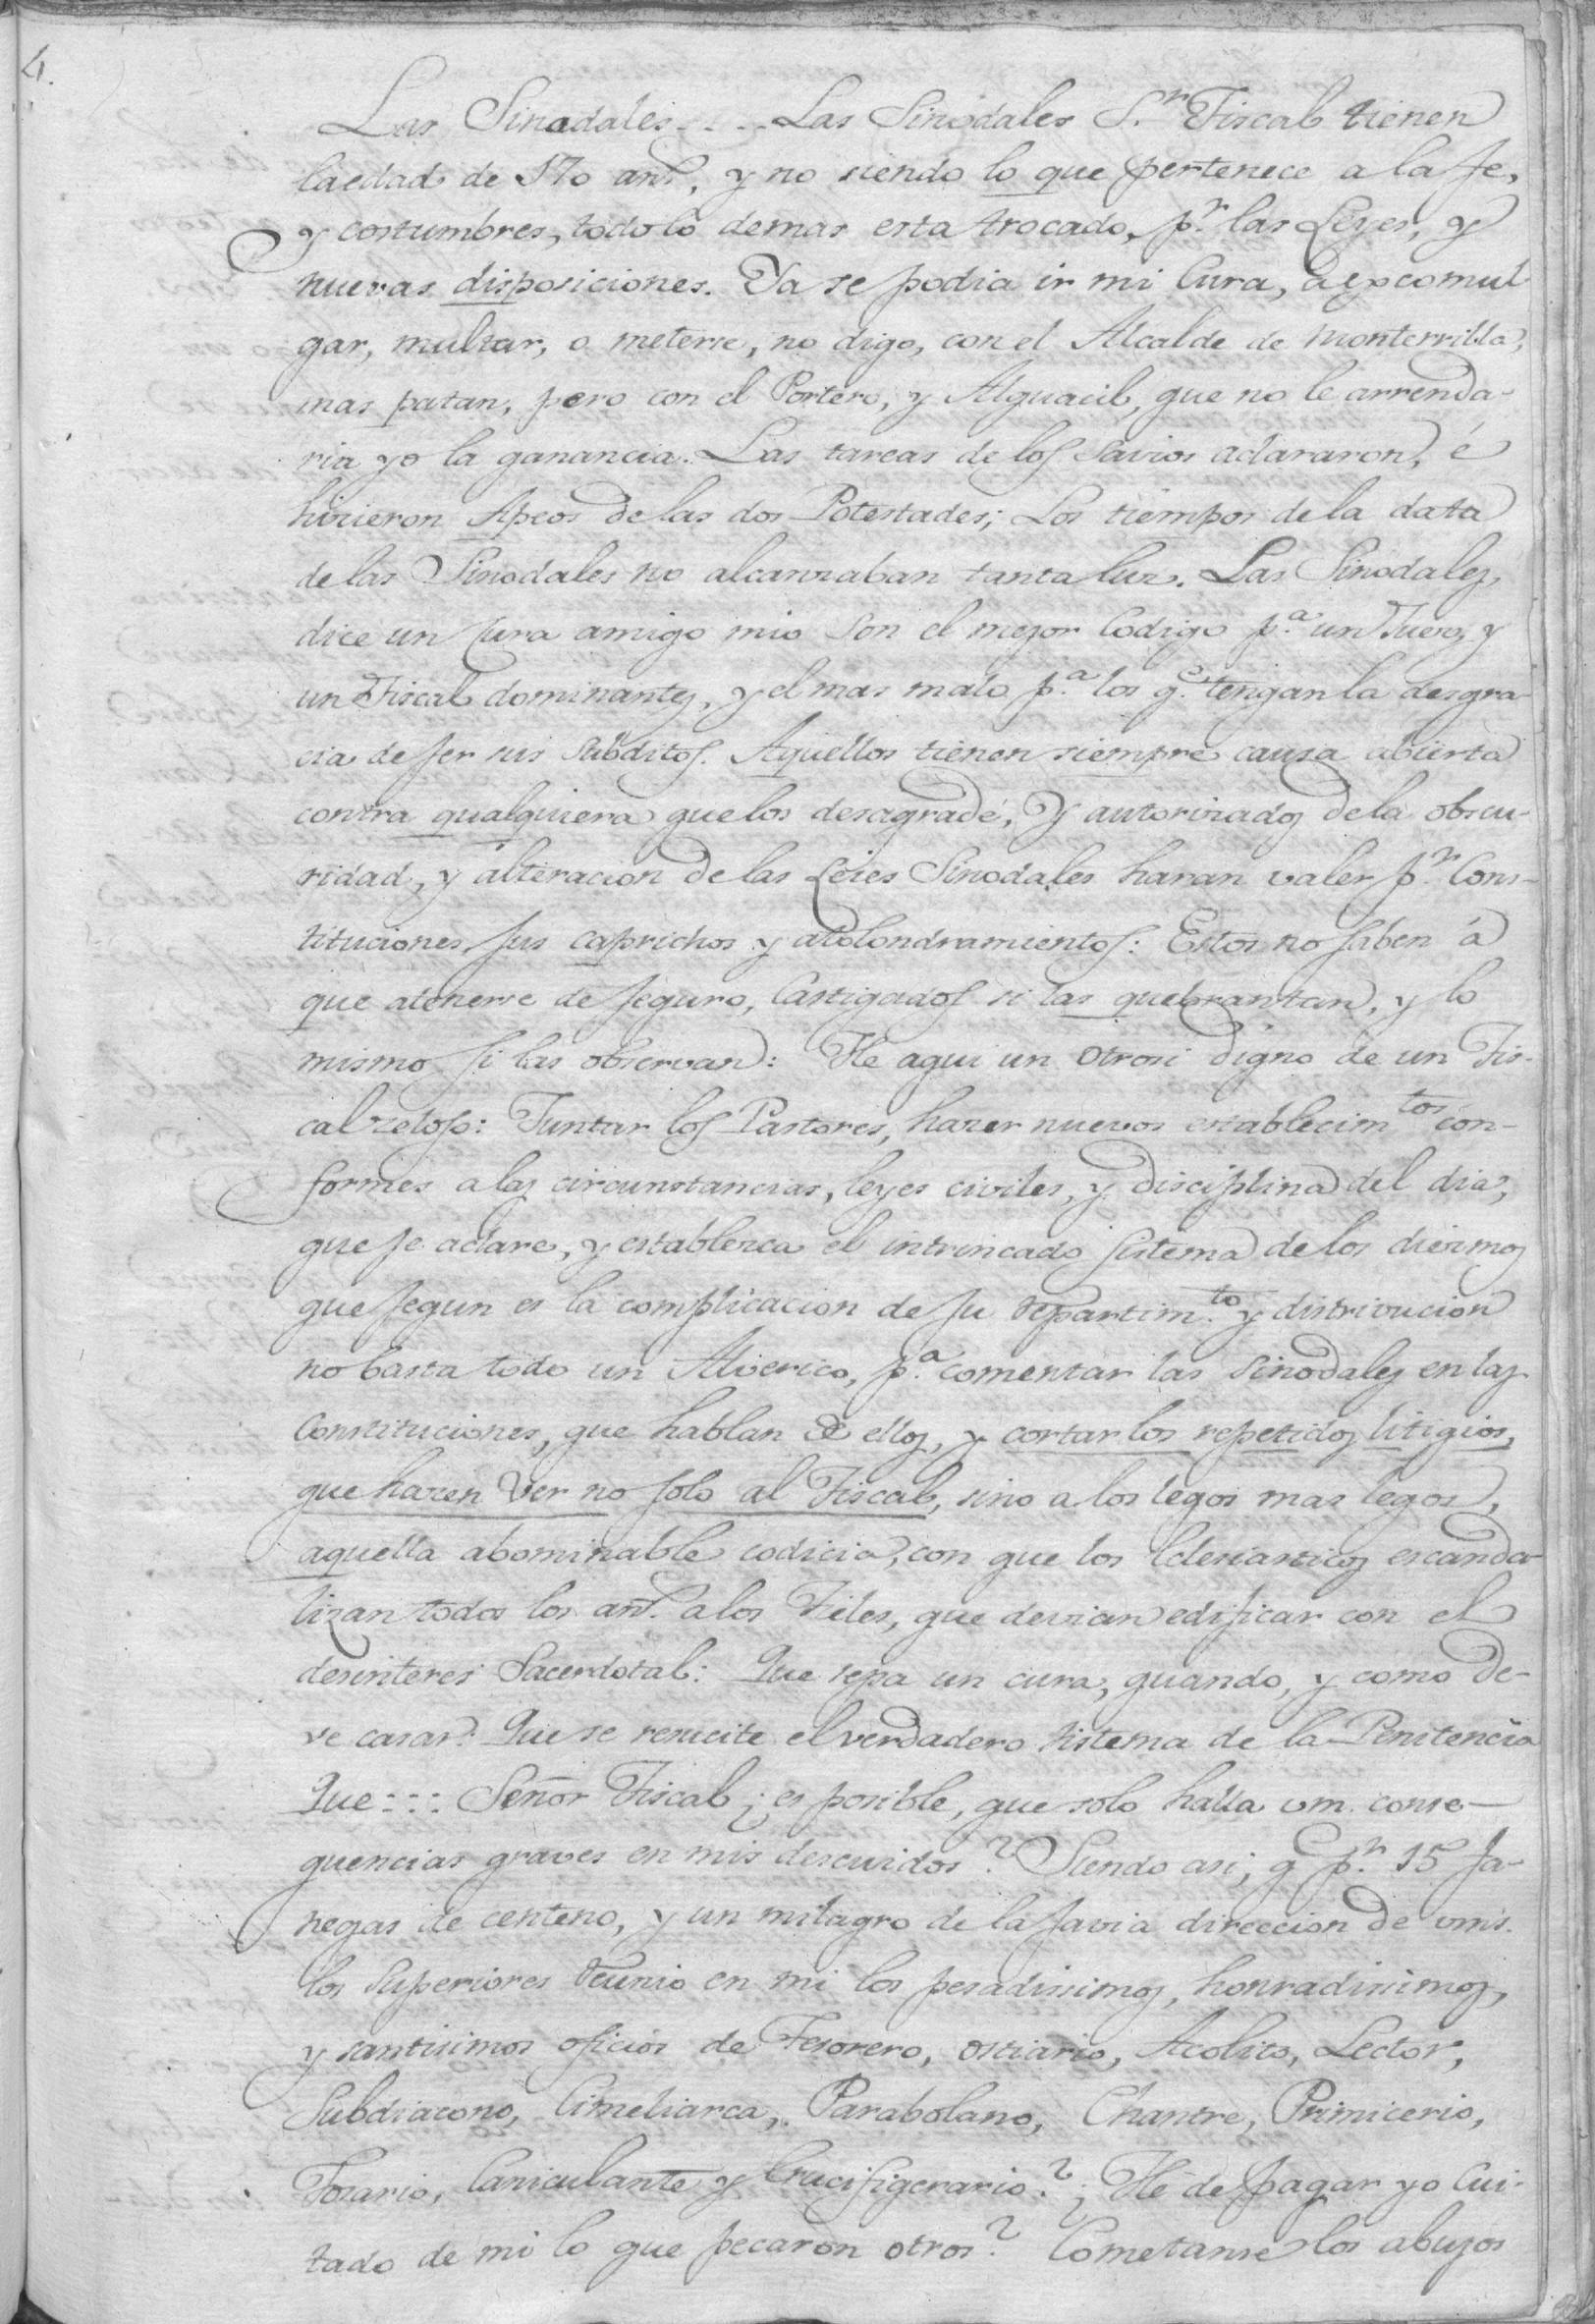 4.
Las Sinodales . . . . Las Sinodales S.r Fiscal tienen
la edad de 170 an.s, y no siendo lo que pertenece a la fe,
y costumbres, todo lo demas esta trocado, p.r las Leyes, y
nuevas disposiciones. Ya se podia ir mi Cura, a excomul
gar, multar, o meterse, no digo, con el Alcalde de Monterrilla,
mas patan, pero con el Portero, y Alguacil, que no le arrenda-
ria yo la ganancia. Las tareas de los Savios aclararon, é
hicieron Apeos de las dos Potestades; Los tiempos de la data
de las Sinodales no alcanzaban tanta luz. Las Sinodales,
dice un Cura amigo mio son el mejor Codigo p.a un Juez, y
un Fiscal dominantes, y el mas malo p.a los q.e tengan la desgra-
cia de ser sus subditos. Aquellos tienen siempre causa abierta
contra qualquiera que los desagrade, Y autorizados de la obscu-
ridad, y alteracion de las Leies Sinodales haran valer p.r Cons-
tituciones sus caprichos y atolondramientos: Estos no saben á
que atenerse de seguro, Castigados si las quebrantan, y lo
mismo si las observan: He aqui un otrosi digno de un Fis-
cal zeloso: Juntar los Pastores, hazer nuevos establecim.tos con-
formes a las circunstancias, leyes civiles, y disciplina del dia,
que se aclare, y establezca el intrincado sistema de los diezmos
que segun es la complicacion de su repartim.to y distrivucion
no basta todo un Alverico, p.a comentar las Sinodales en las
Constituciones, que hablan de ellos, y cortar los repetidos litigios,
que hazen ver no solo al Fiscal, sino a los legos mas legos,
aquella abominable codicia, con que los Eclesiasticos escanda-
lizan todos los an.s a los Fieles, que devian edificar con el
desinteres Sacerdotal: Que sepa un cura, quando, y como de-
ve casar: Que se resucite el verdadero sistema de la Penitencia
Que : : : Señor Fiscal ¿es posible, que solo halla vm. conse-
quencias graves en mis descuidos? Siendo asi, q.e p.r 15 fa-
negas de centeno, y un milagro de la savia direccion de vms.
los Superiores reunio en mi los pesadisimos, honradisimos,
y santisimos oficios de Tesorero, ostiario, Acolito, Lector,
Subdiacono, Cimeliarca, Parabolano, Chantre, Primicerio,
Fosario, Caniculante y Crucifigerario? ¿He de pagar yo Cui-
tado de mi lo que pecaron otros? Cometanse los abusos